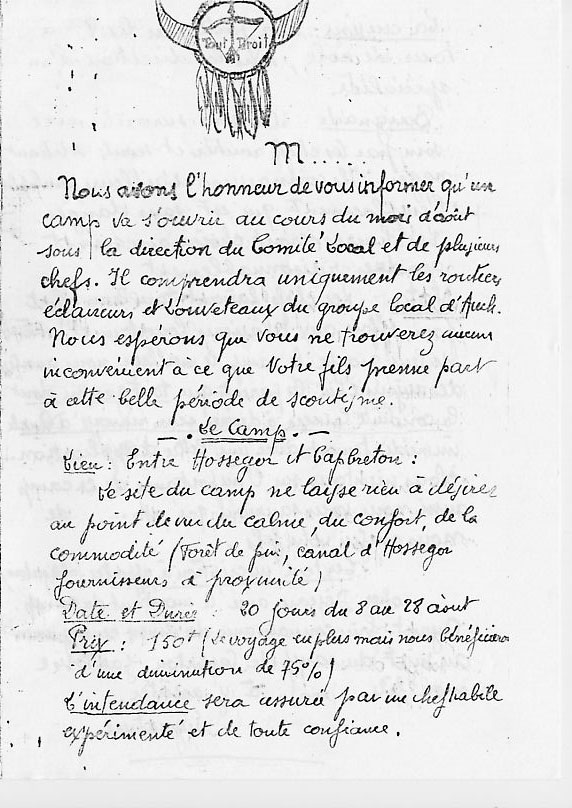 Tout Droit
M....
Nous avons l'honneur de vous informer qu'un
camp va s'ouvrir au cours du mois d'août
sous la direction du Comité Local et de plusieurs
chefs. Il comprendra uniquement les routiers
éclaireurs et Louveteaux du groupe local d'Auch.
Nous espérons que vous ne trouverez aucun
inconvenient à ce que Votre fils prenne part
à cette belle période de scoutisme.
— . Le Camp . —
Lieu : Entre Hossegor et Capbreton :
Le site du camp ne laisse rien à désirer
au point de vue du calme, du confort, de la
commodité (Forêt de pins, canal d'Hossegor
fournisseurs à proximité)
Date et Durée : 20 jours du 8 au 28 août
Prix : 150f (Le voyage en plus mais nous bénéficierons
d'une diminution de 75%)
L'intendance sera assurée par un chef habile
expérimenté et de toute confiance.